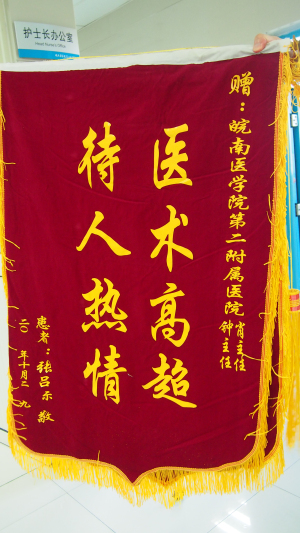 护士长办公室
Head Nurse's Office
赠：皖南医学院第二附属医院
肖主任
钟主任
医术高超
待人热情
患者：张吕示 敬